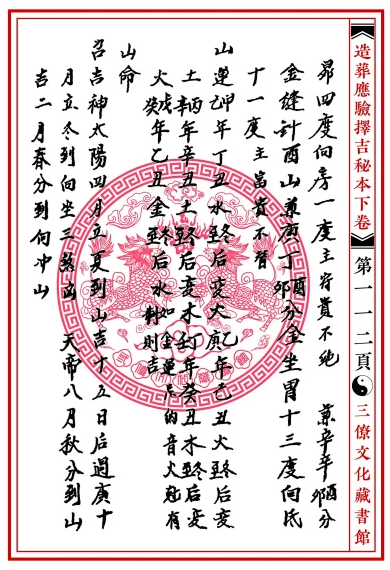 造葬應驗擇吉秘本下卷 第一一二頁 三僚文化藏書館
昴四度向房一度主符貴不絶 兼辛辛酉卯分
金縫計酉山兼庚丁酉卯分金坐胃十三度向氐
十一度主富貴不替
山運甲年丁丑水冬至后變火乙庚年己丑火冬至后變
土丙辛年辛丑土冬至后變木丁壬年癸丑木冬至后變
火戊癸年乙丑金冬至后水如金運忌納音火剋有
制則吉
山命
召吉神太陽四月立夏到山吉十五日后過庚十
月立冬到向坐三煞凶 天帝八月秋分到山
吉二月春分到向冲山